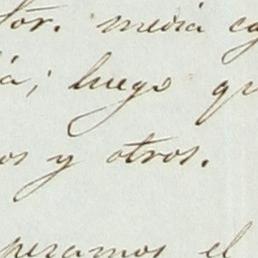 tor. media
á; luego qu
os y otros.
peramos el